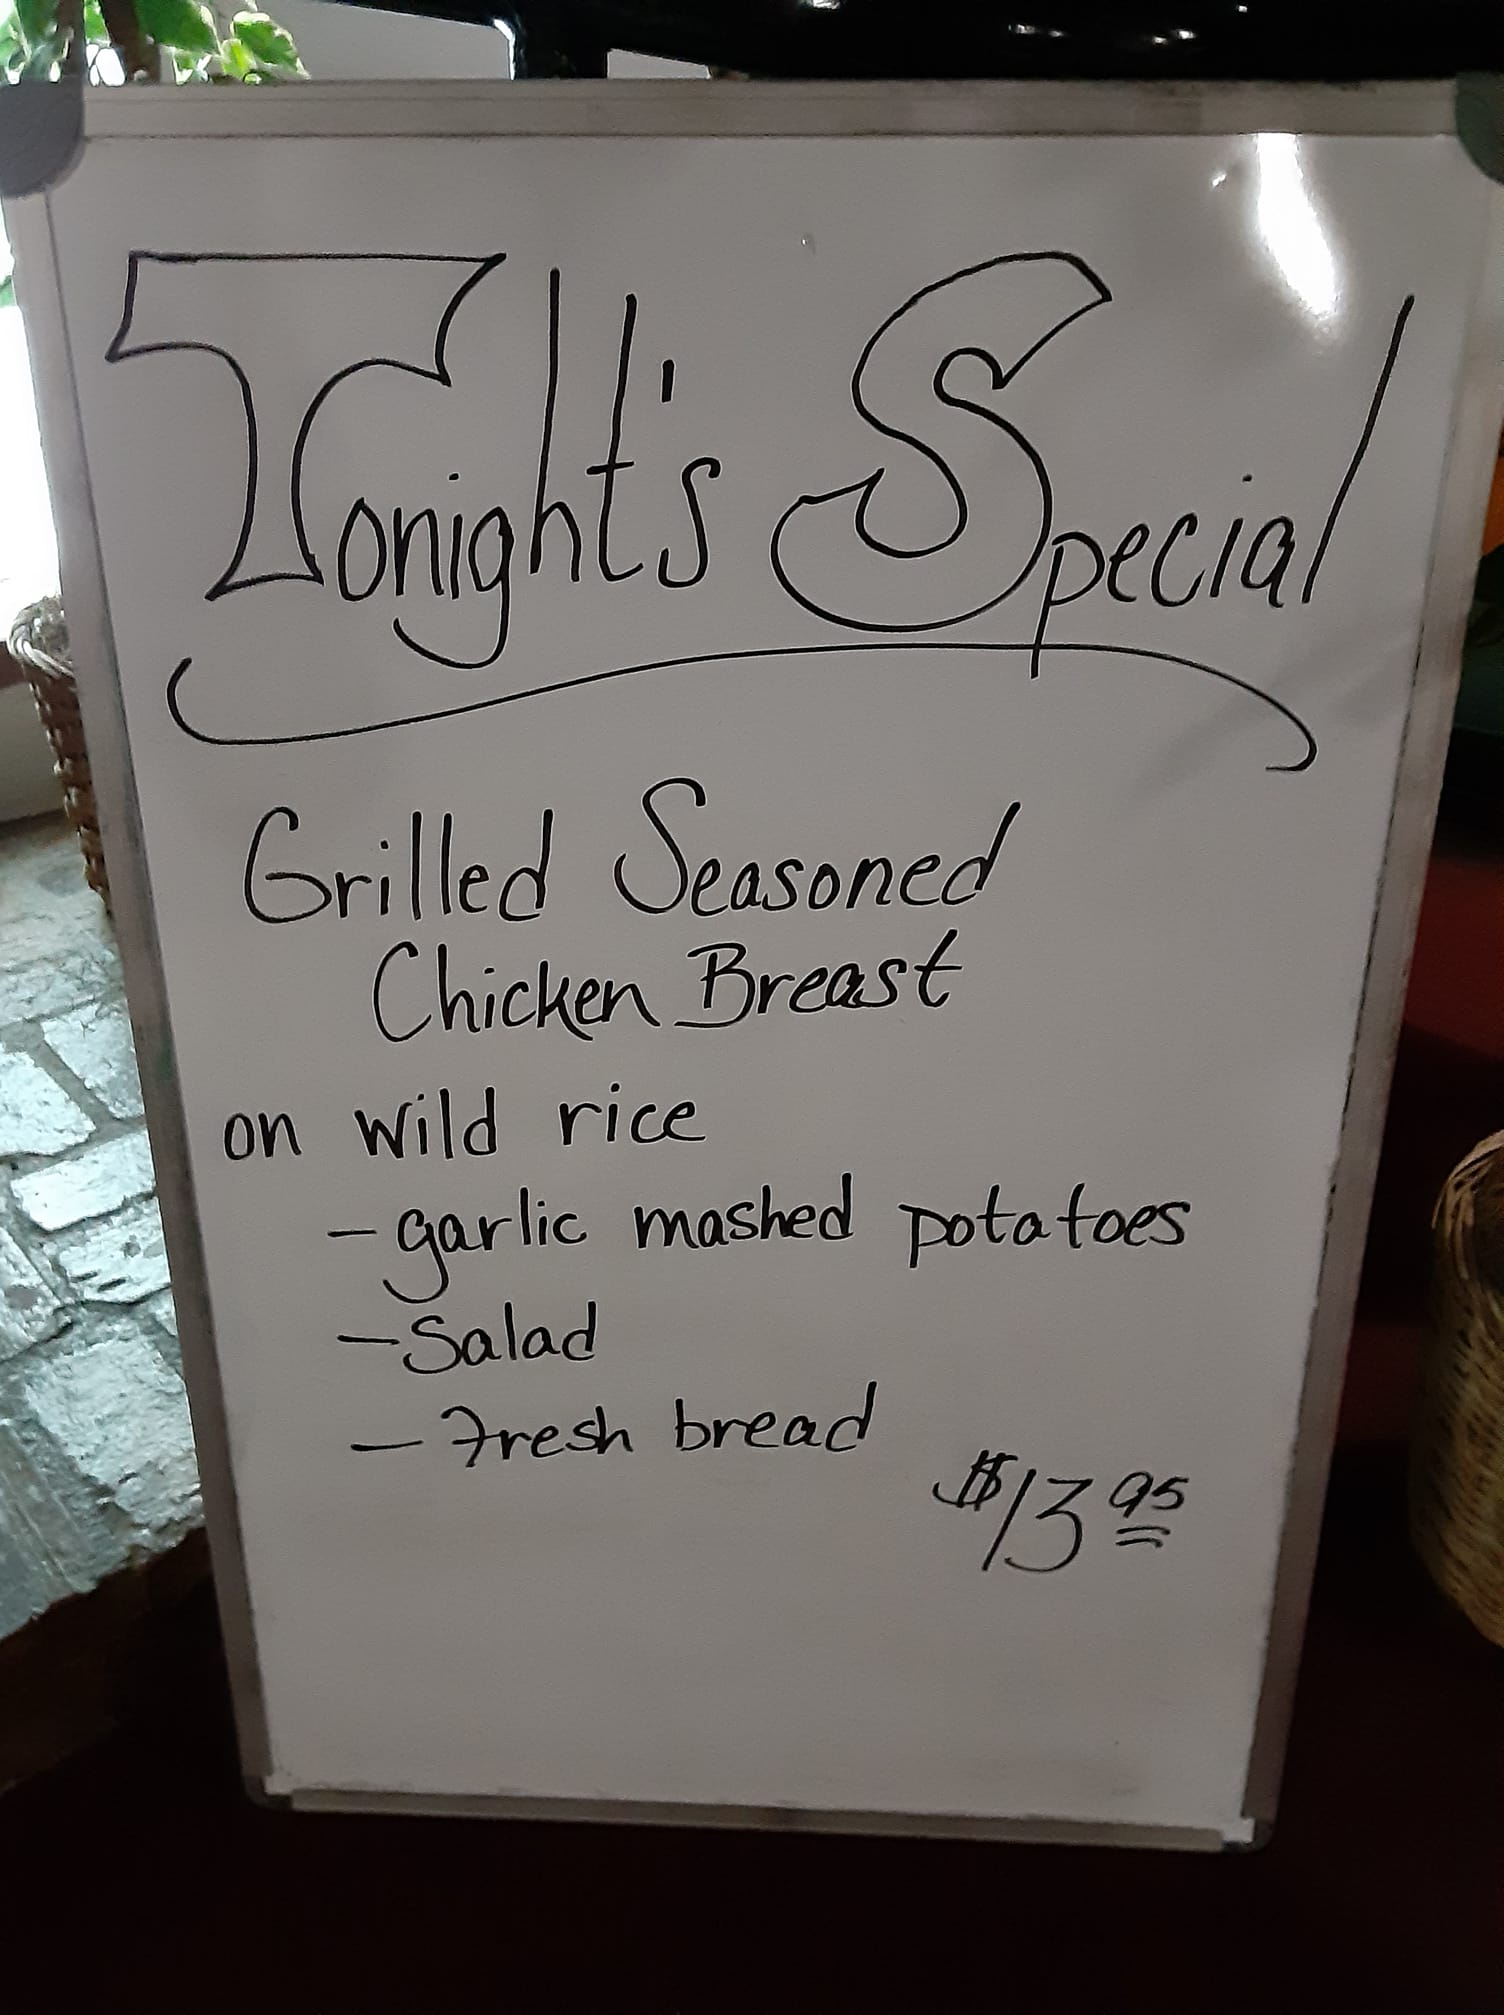 Tonight's Special
Grilled Seasoned
Chicken Breast
on wild rice
- garlic mashed potatoes
- Salad
- Fresh bread
$13 95